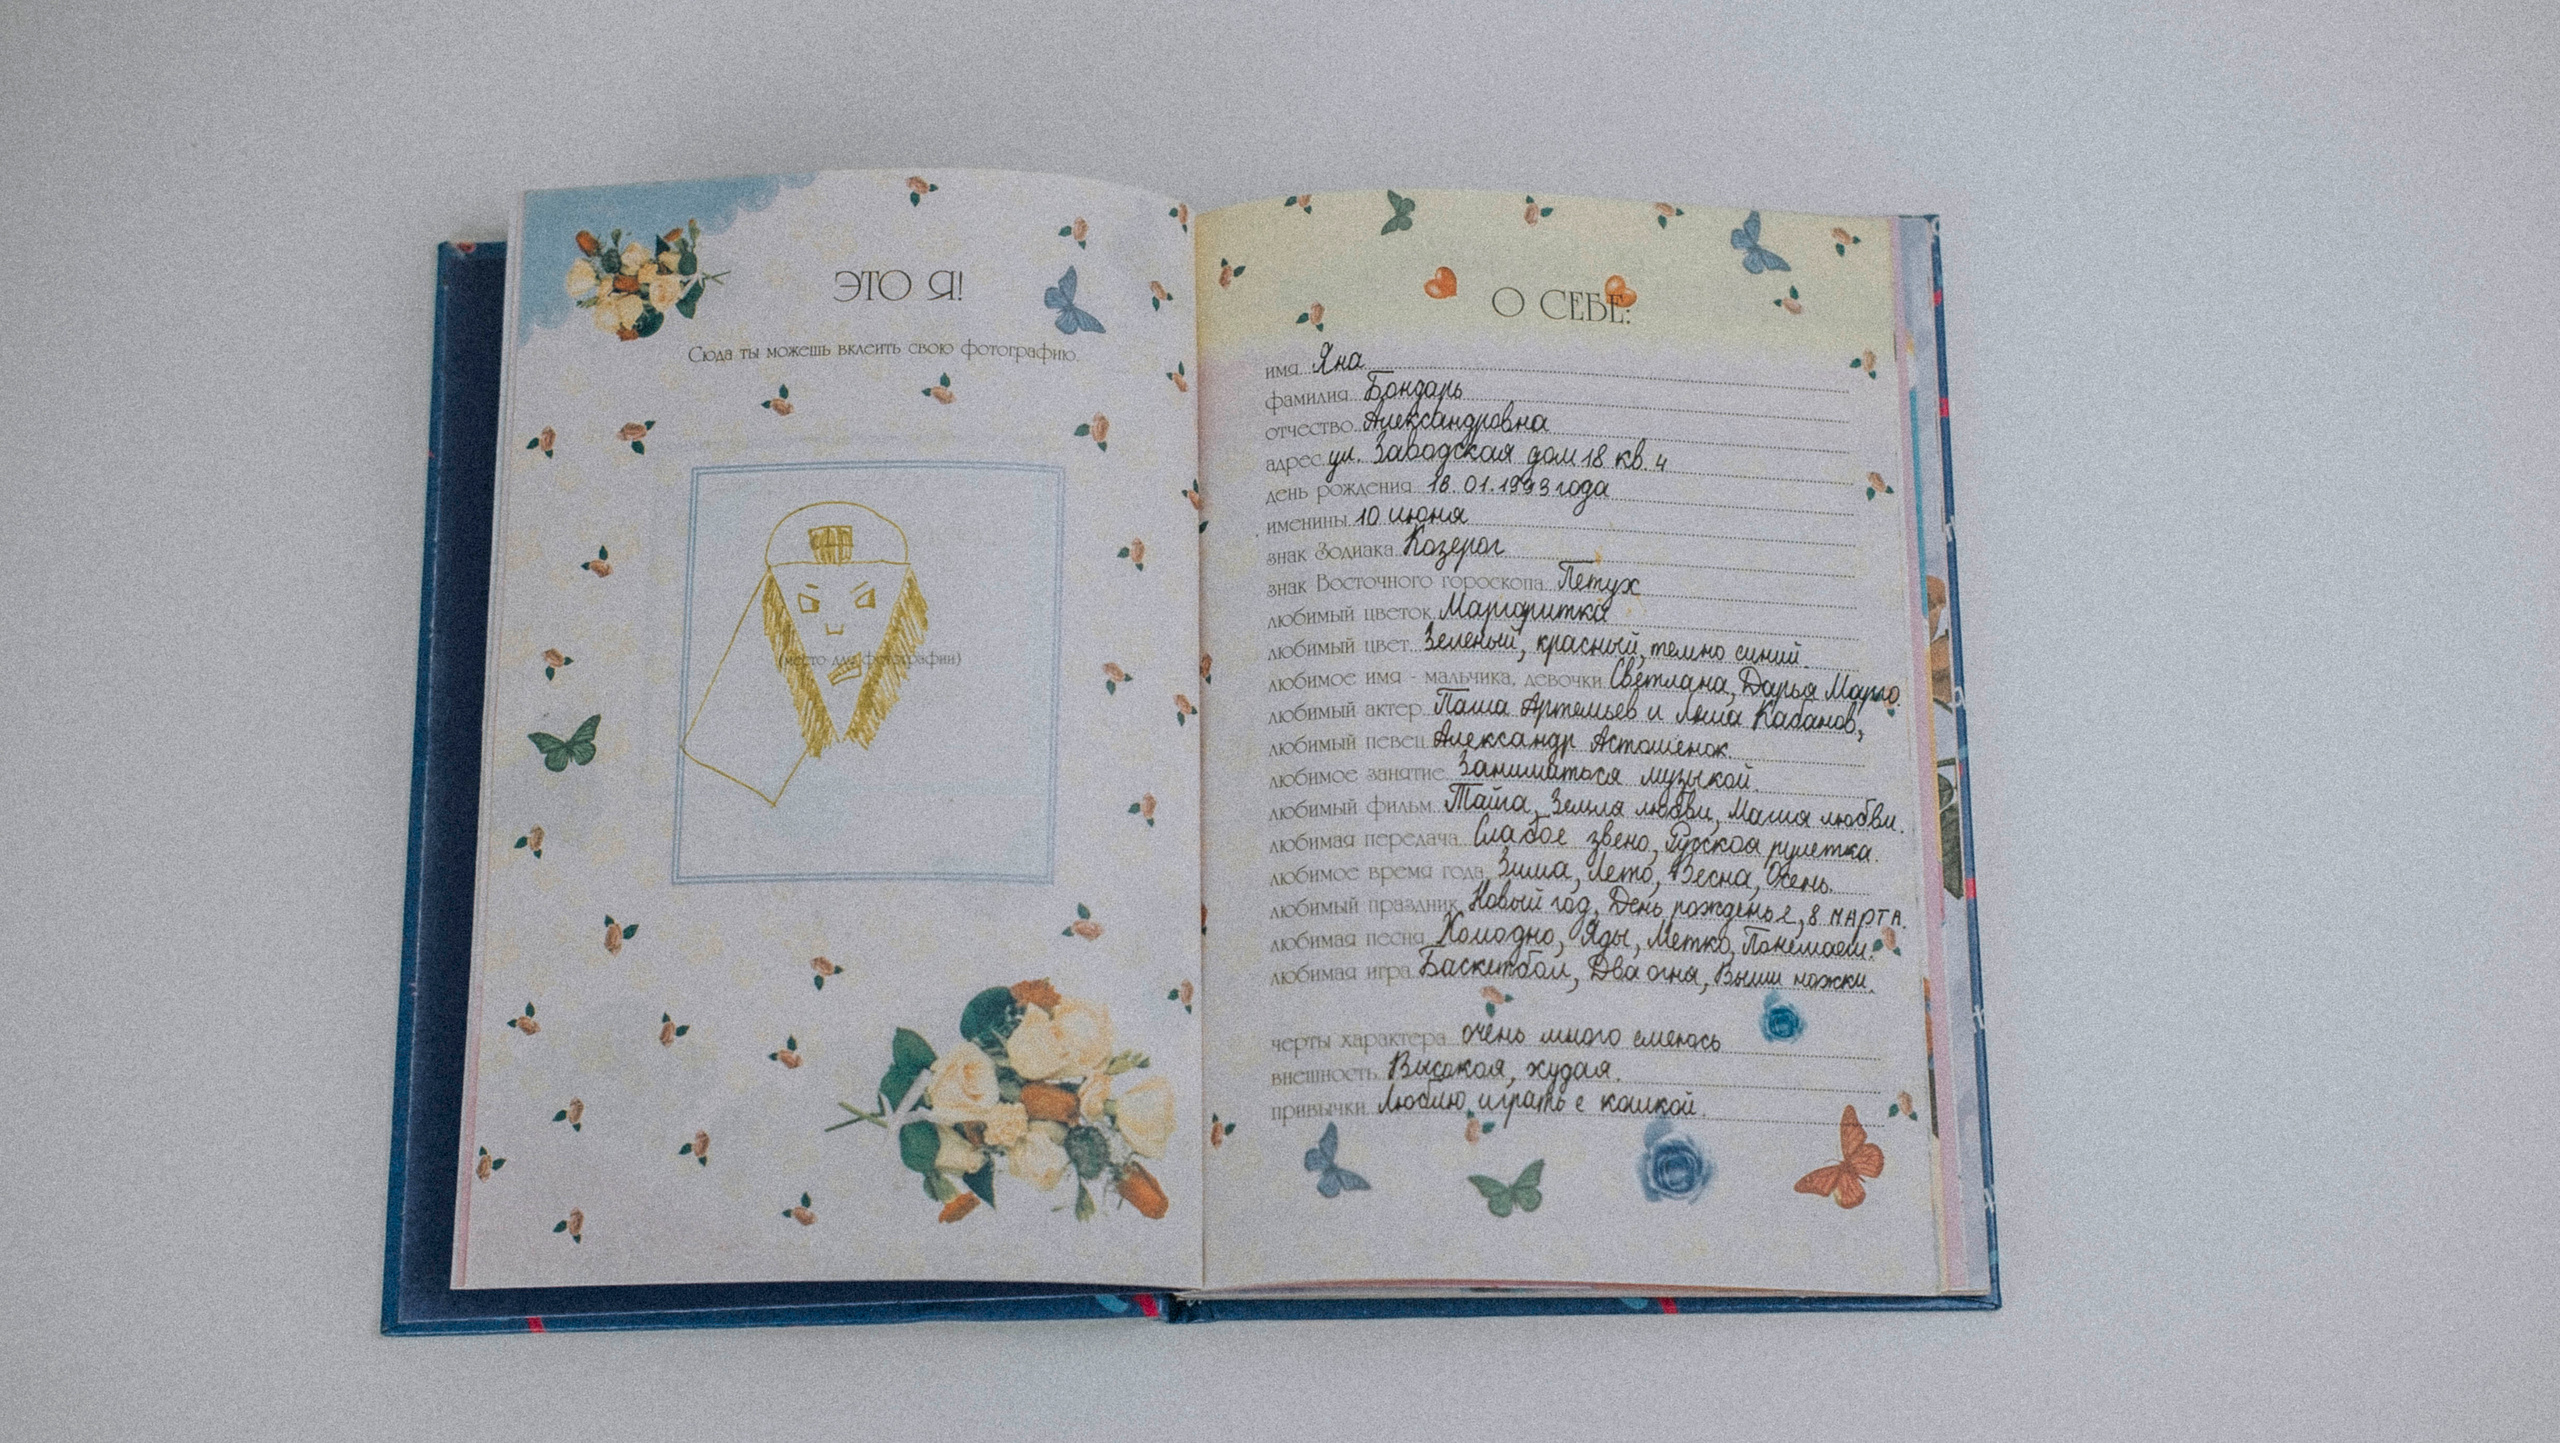 ЭТО Я!
Сюда ты можешь вклеить свою фотографию.
(место для фотографии)
О СЕБЕ:
имя Яна
фамилия Бондарь
отчество Александровна
адрес ул. Заводская дом 18 кв. 4
день рождения 18.01.1993 года
именины 10 июня
знак Зодиака Козерог
знак Восточного гороскопа Петух
любимый цветок Маргаритка
любимый цвет Зеленый, красный, темно синий.
любимое имя - мальчика, девочки Светлана, Дарья Марго.
любимый актер Паша Артемьев и Леша Кабанов,
любимый певец Александр Асташенок.
любимое занятие Заниматься музыкой.
любимый фильм Тайга, Земля любви, Маша любви.
любимая передача Слабое звено, Русская рулетка.
любимое время года Зима, Лето, Весна, Осень.
любимый праздник Новый год, День рожденье, 8 марта.
любимая песня Холодно, Яды, Метко, Понимаеш.
любимая игра Баскетбол, Два огня, Выши ножки.
черты характера очень много смеюсь
внешность Высокая, худая.
привычки Люблю играть с кошкой.